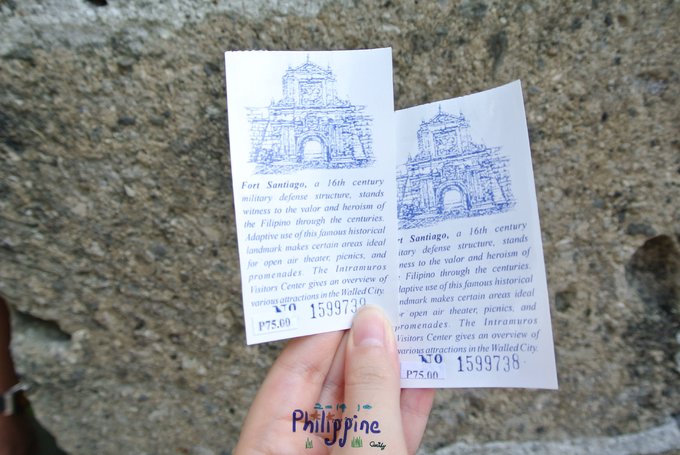 Fort Santiago, a 16th century
military defense structure, stands
witness to the valor and heroism of
the Filipino through the centuries.
Adaptive use of this famous historical
landmark makes certain areas ideal
for open air theater, picnics, and
promenades. The Intramuros
Visitors Center gives an overview of
various attractions in the Walled City.
No 1599739
P75.00
rt Santiago, a 16th century
military defense structure, stands
witness to the valor and heroism of
Filipino through the centuries.
daptive use of this famous historical
landmark makes certain areas ideal
or open air theater, picnics, and
promenades. The Intramuros
Visitors Center gives an overview of
various attractions in the Walled City.
No 1599738
P75.00
Philippine